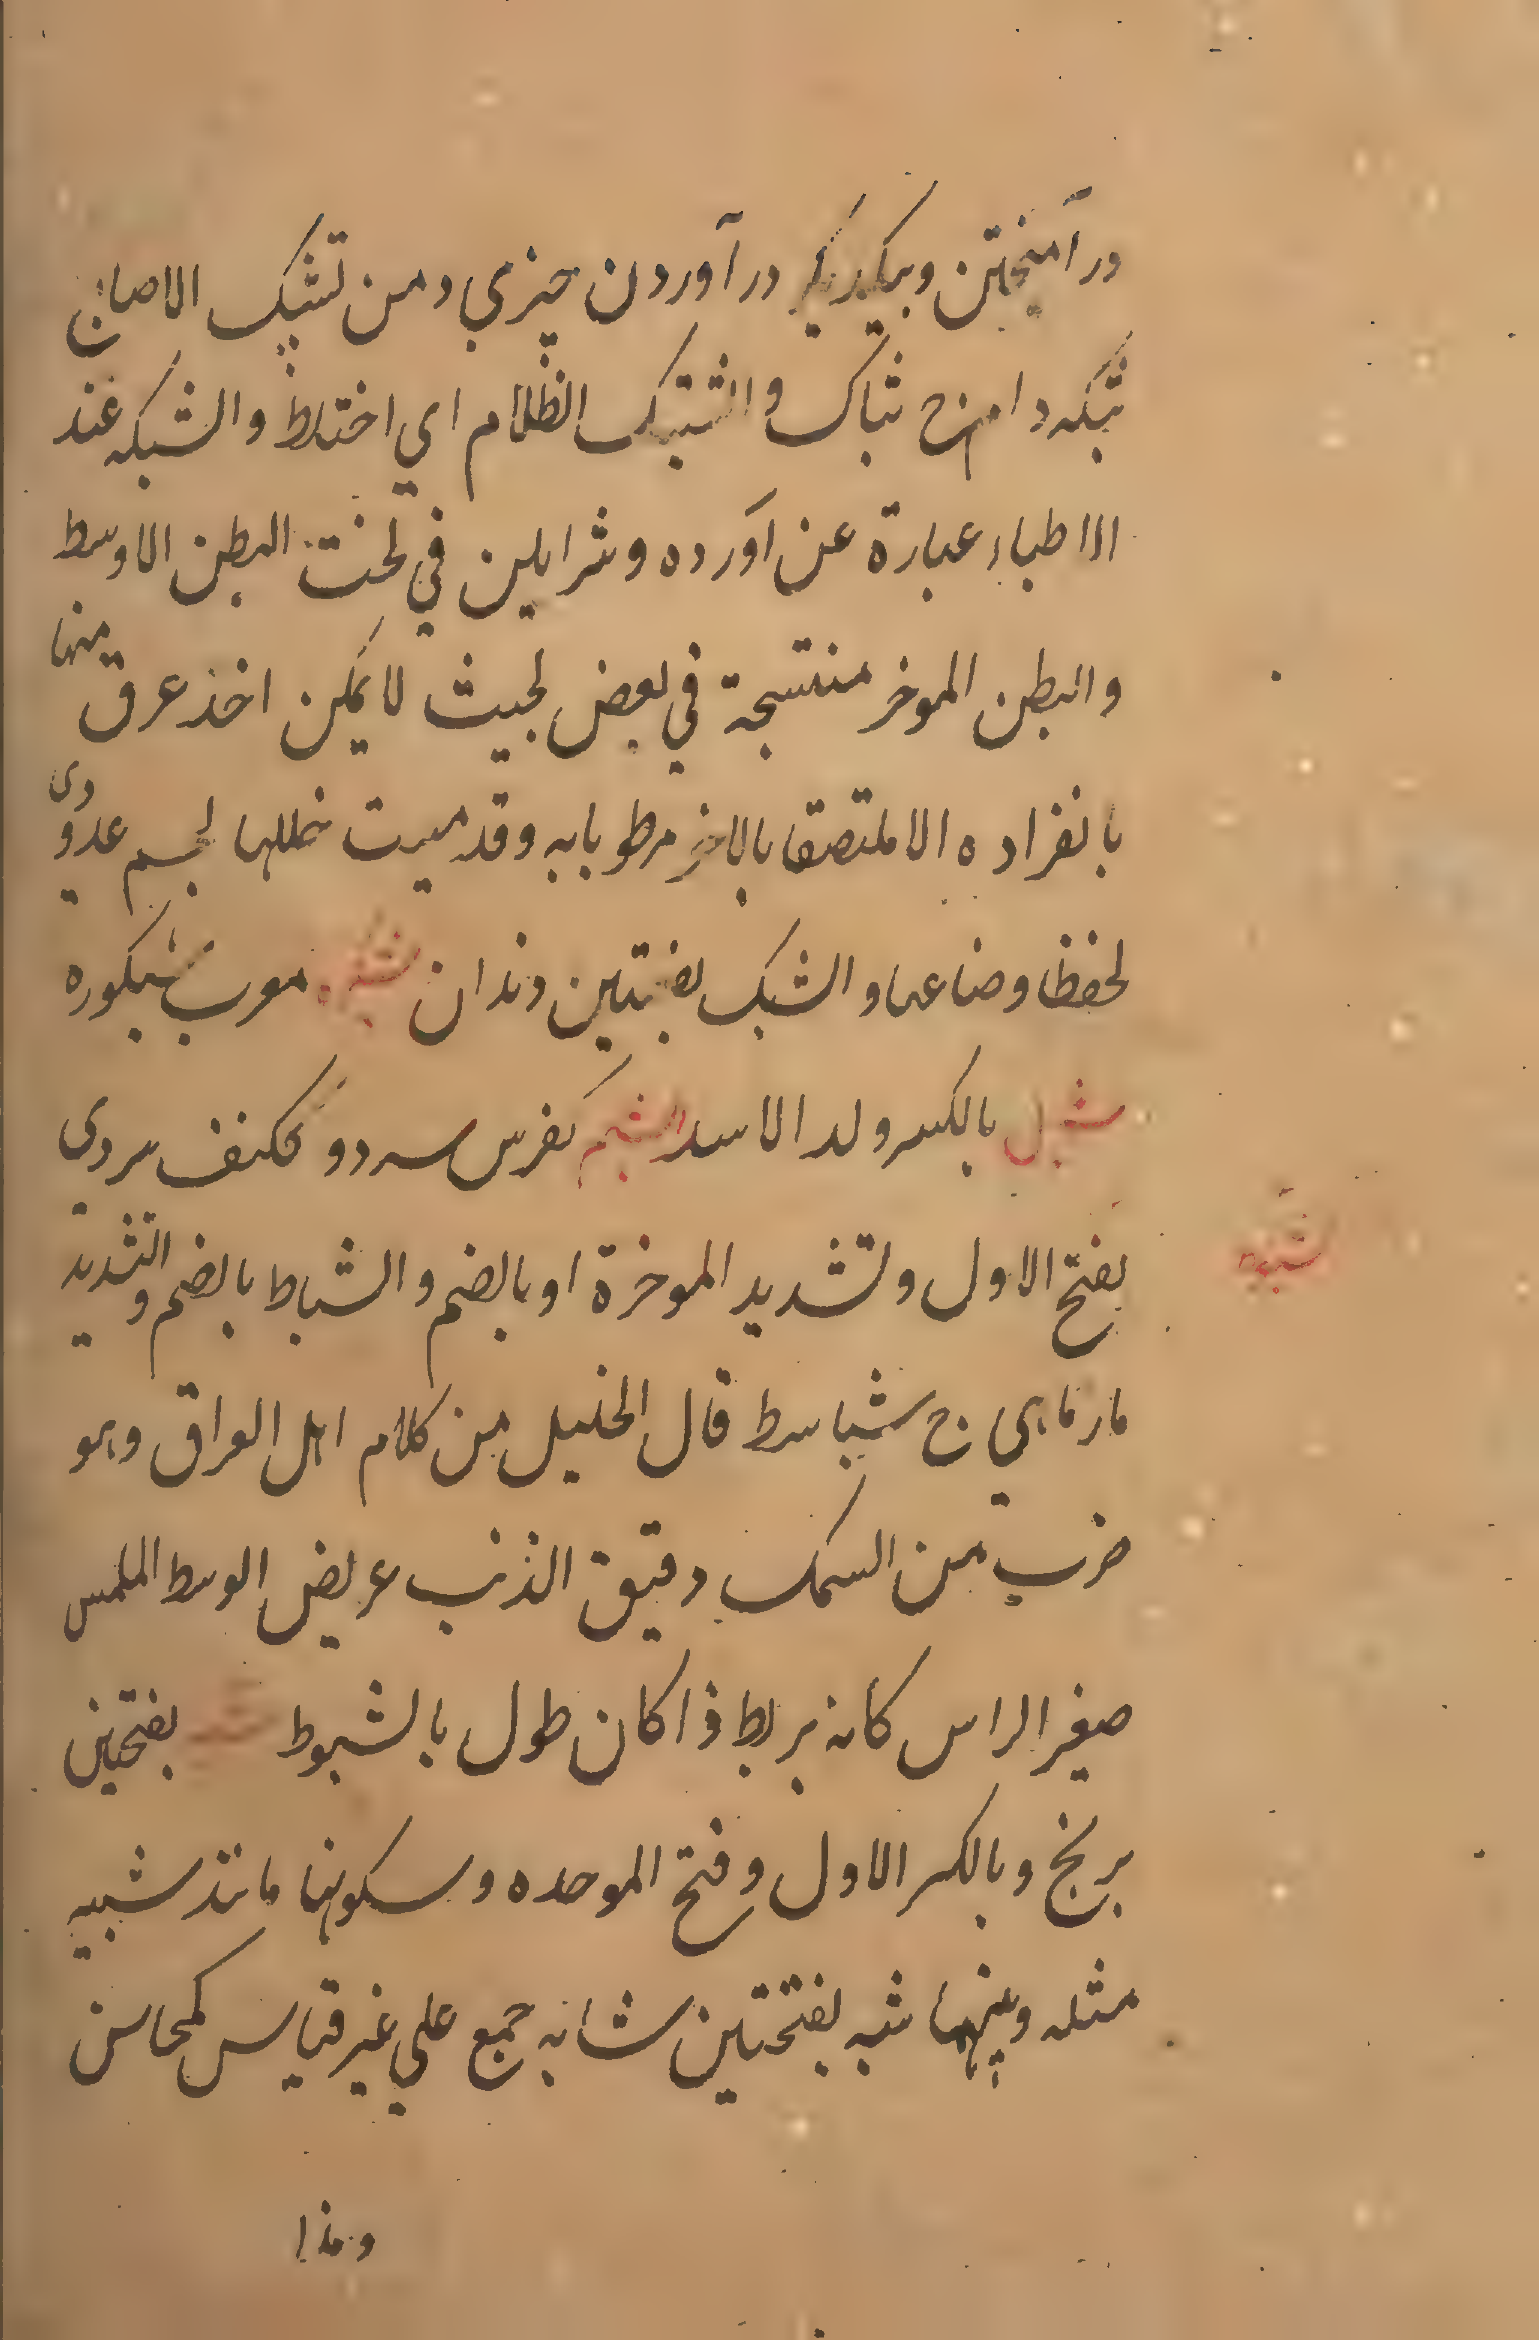 در آمیختن و بیکدیگر در آوردن چیزي و من تشبیک الاصابع
شبکه دام ج شباک و اشتبک الظلام اي اختلط و الشبکه عند
الاطباء عبارة عن آورده و شرایین في تحت البطن الاوسط
و البطن الموخر منتسجة في بعض بحیث لا یمکن اخذ عرق منها
بانفراده الا ملتصقا بالاخر مربوطا به و قد ملیت خللها بجسم غدودی
لحفظ اوضاعها و الشبک بفتحتین دندان معرب شبکوره
شبل بالکسر ولد الاسد الشبم کفرس سرد و ککنف سردي
بفتح الاول و تشدید الموخرة او بالضم و الشباط بالضم و التشدید
مارماهي ج شبابیط قال الخلیل من کلام اهل العراق و هو
ضرب من السمک دقیق الذنب عریض الوسط الملمس
صغیر الراس کانه بربط و اذا کان طول بالشبوط بفتحتین
برنج و بالکسر الاول و فتح الموحده و سکونها مانند شبیه
مثله و بینهما شبه بفتحتین مشابه جمع علي غیر قیاس کمحاسن
و هذا